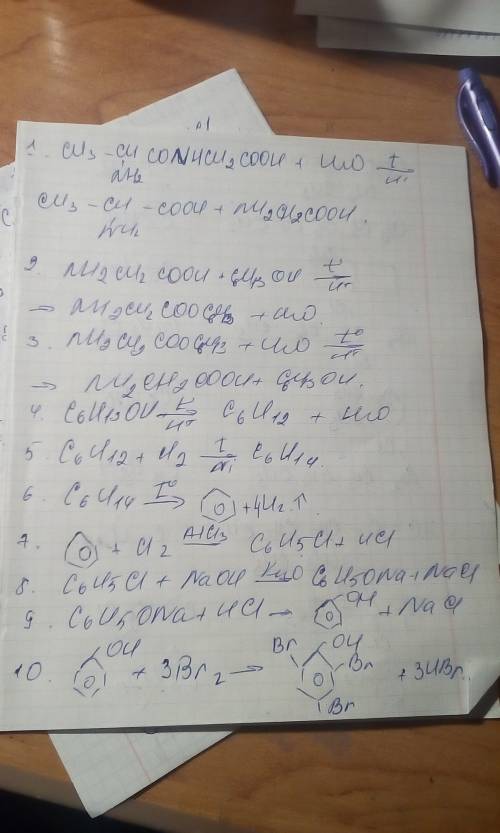 1. CH3 - CH CONHCH2COOH + H2O t H+
NH2
CH3 - CH - COOH + NH2CH2COOH.
NH2
2. NH2CH2COOH + C6H13OH t° H+
→ NH2CH2COOC6H13 + H2O
3. NH2CH2COOC6H13 + H2O t° H+
→ NH2CH2COOH + C6H13OH.
4. C6H13OH t H+ C6H12 + H2O
5. C6H12 + H2 t Ni C6H14.
6. C6H14 t° → + 4H2 ↑
7. + Cl2 AlCl3 C6H5Cl + HCl
8. C6H5Cl + NaOH H2O C6H5ONa + NaCl
9. C6H5ONa + HCl → OH + NaCl
10. OH + 3Br2 → Br OH Br Br + 3HBr.